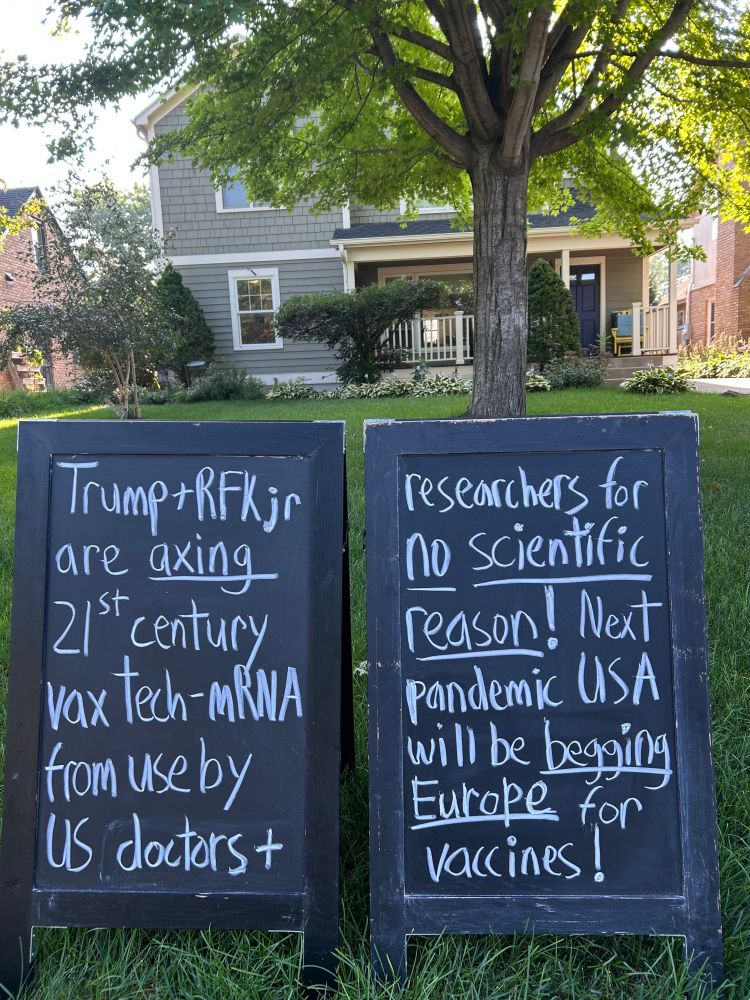 Trump+RFKjr
are axing
21st century
vax tech-mRNA
from use by
US doctors+
researchers for
no scientific
reason! Next
pandemic USA
will be begging
Europe for
vaccines!